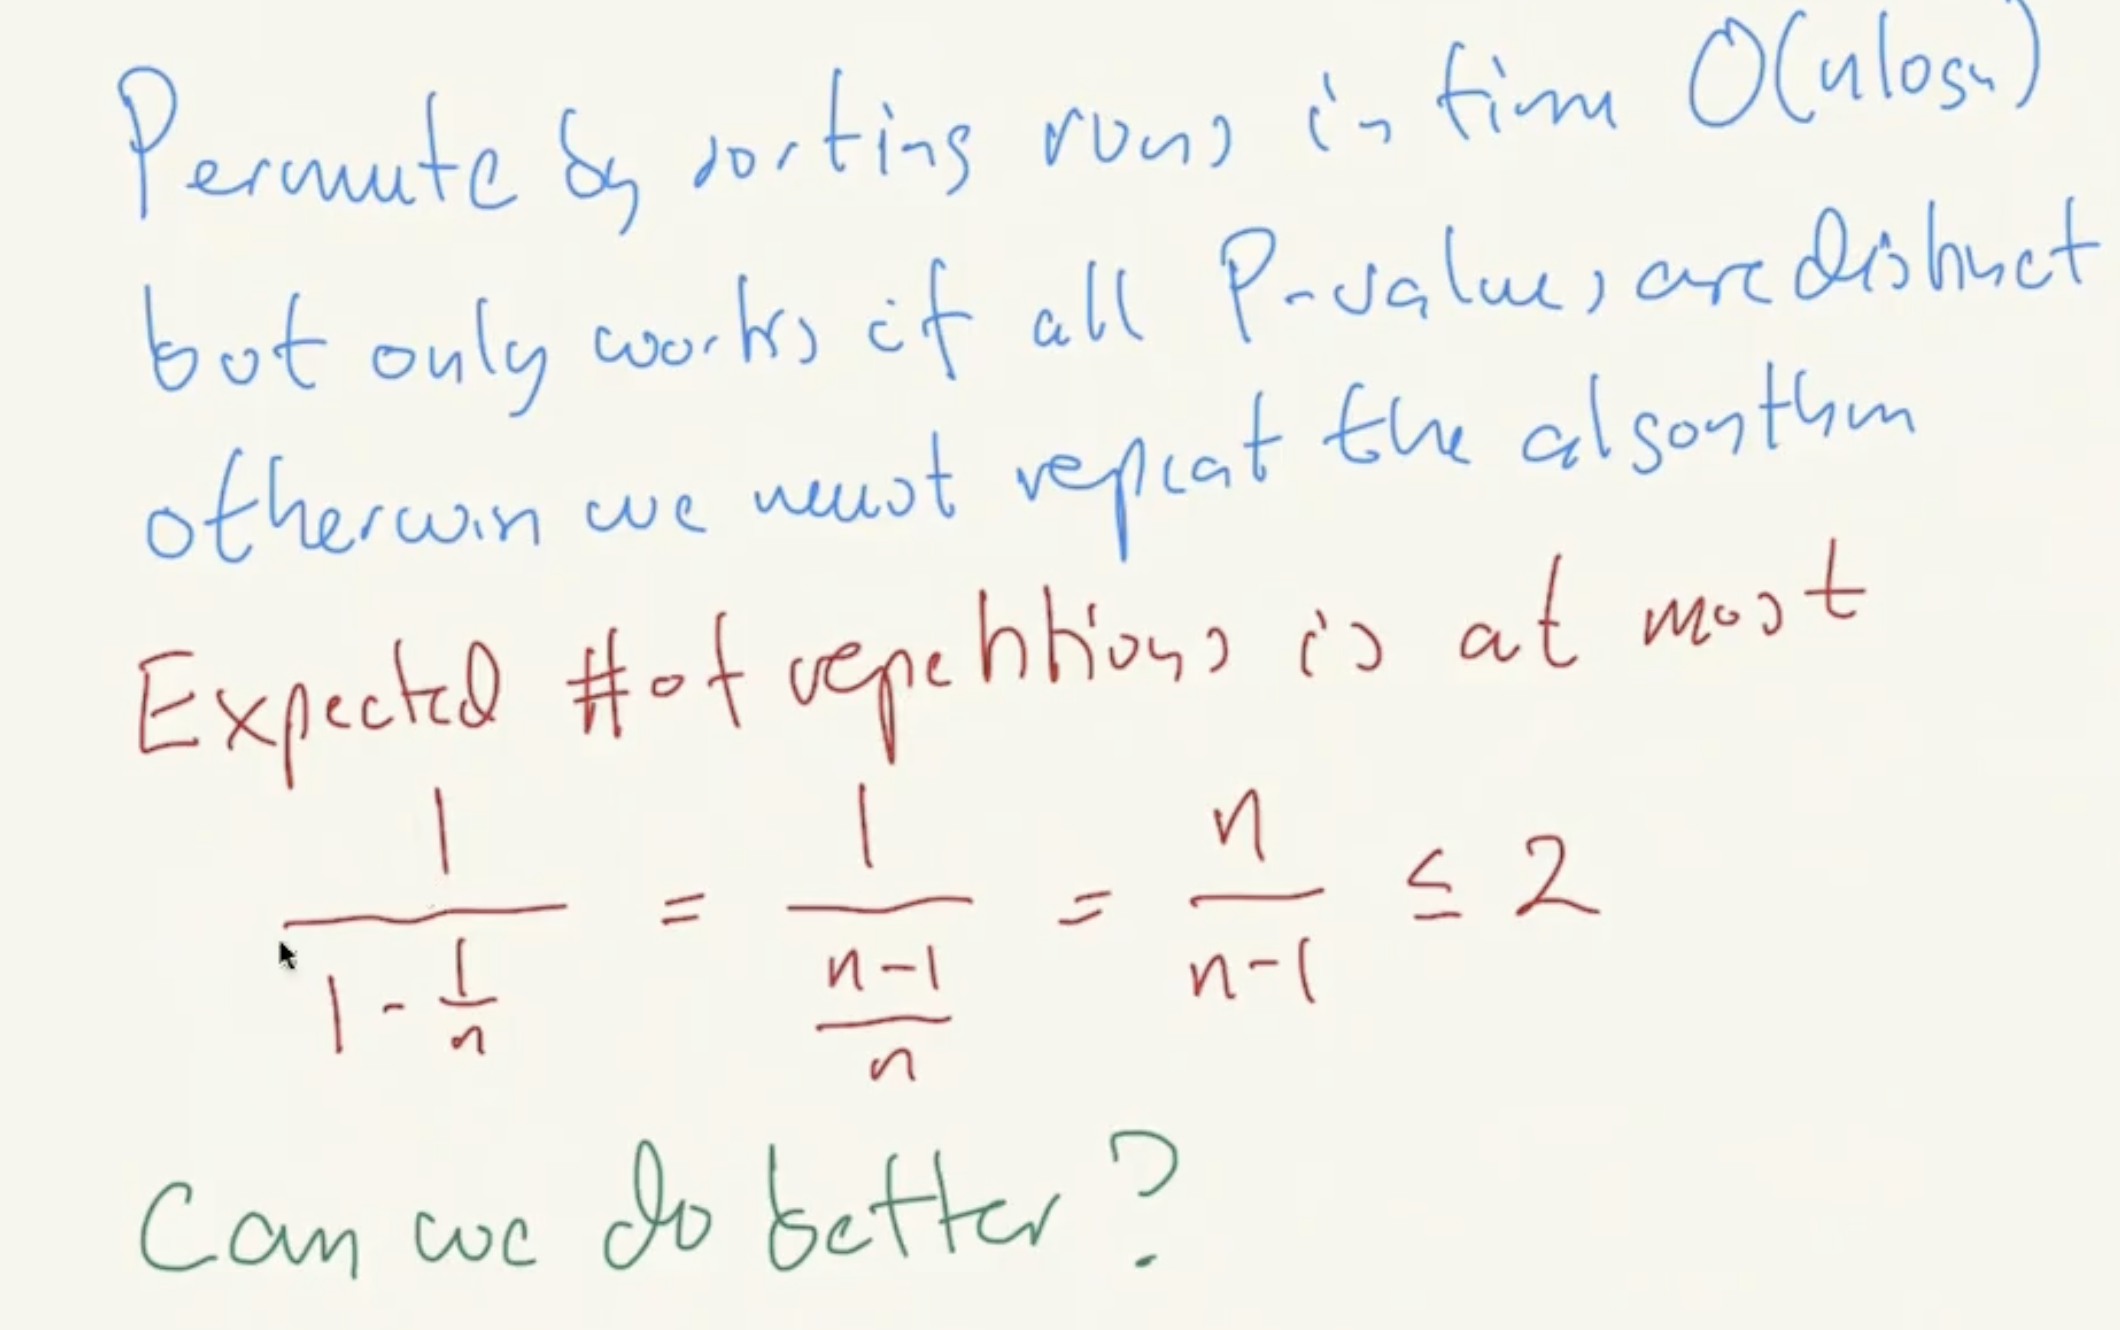 Permute by sorting runs in time O(nlogn)
but only works if all P-values are distinct
otherwise we must repeat the algorithm
Expected # of repetitions is at most
1 / (1 - 1/n) = 1 / ((n-1)/n) = n/(n-1) ≤ 2
Can we do better?